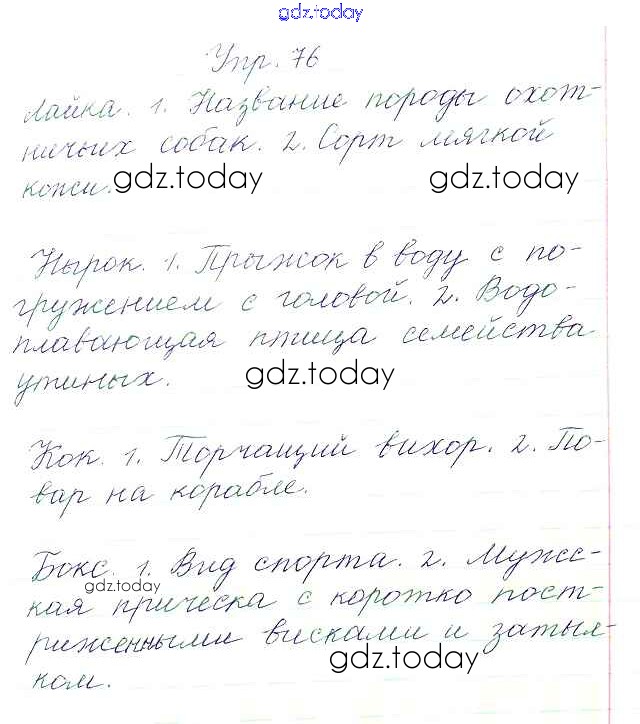 gdz.today
Упр. 76
Лайка. 1. Название породы охот-
ничьих собак. 2. Сорт мягкой
кожи.
gdz.today gdz.today
Нырок. 1. Прыжок в воду с по-
гружением с головой. 2. Водо-
плавающая птица семейства
утиных.
gdz.today
Кок. 1. Торчащий вихор. 2. По-
вар на корабле.
Бокс. 1. Вид спорта. 2. Мужс-
gdz.today
кая прическа с коротко пост-
риженными висками и затыл-
ком.
gdz.today